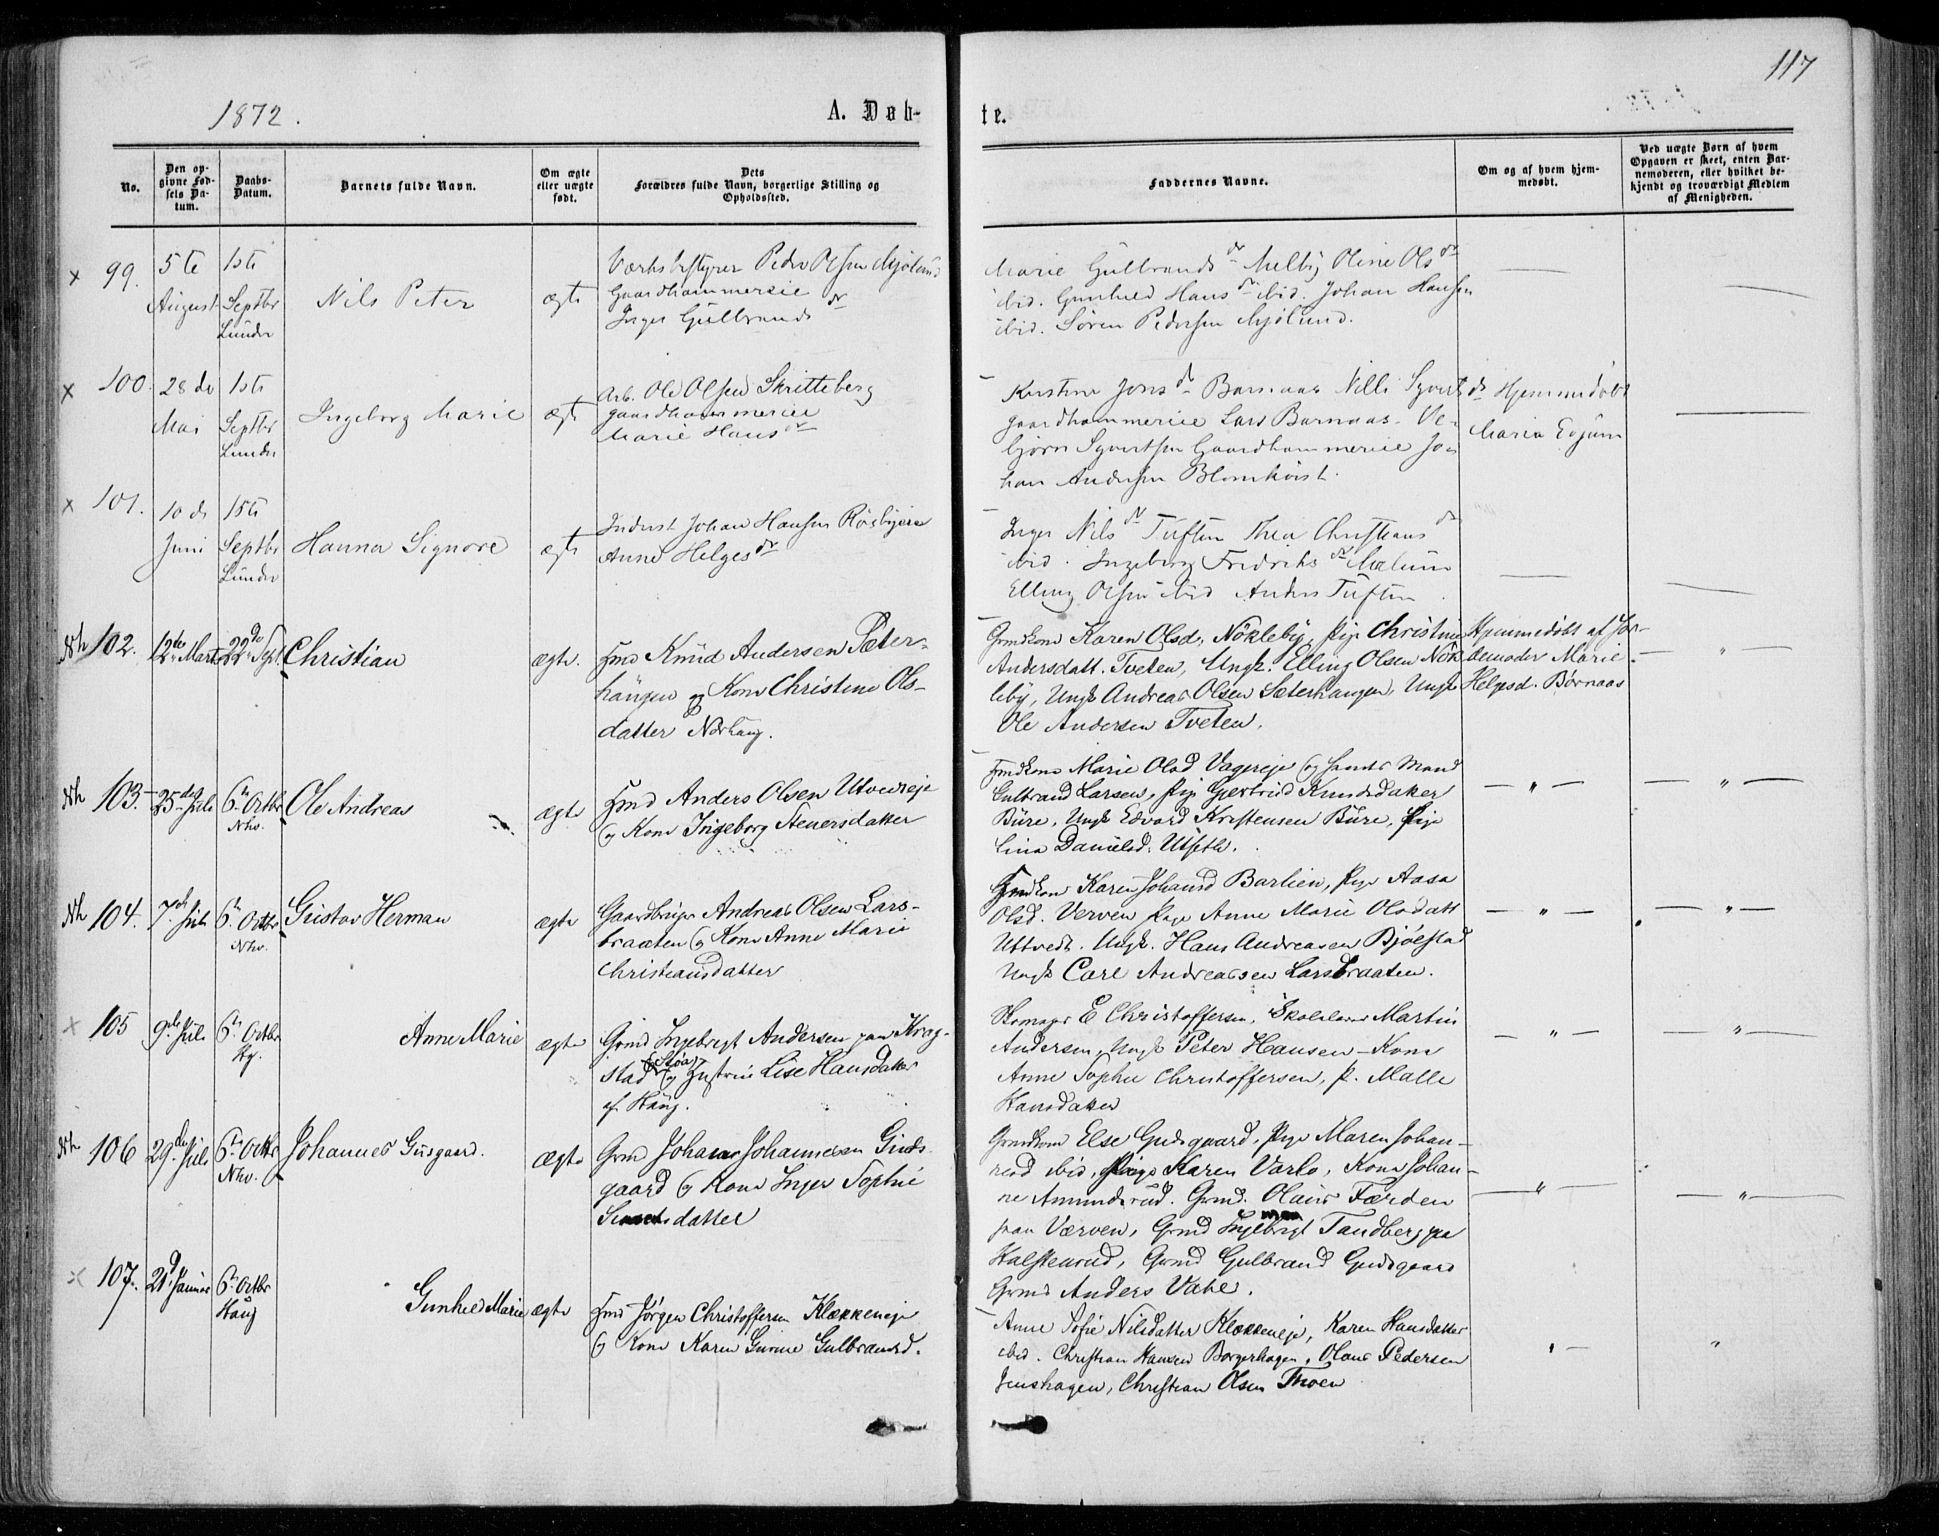 117
1872.
A. Døb-
te.
No.
Den op-
givne Fød-
sels Da-
tum.
Daabs-
Datum.
Barnets fulde Navn.
Om ægte
eller uægte
født.
Dets
Forældres fulde Navn, borgerlige Stilling og
Opholdssted.
Faddernes Navne.
Om og af hvem hjem-
medøbt.
Ved uægte Børn af hvem
Opgaven er skeet, enten Bar-
nemoderen, eller hvilket be-
kjendt og troværdigt Medlem
af Menigheden.
x 99. 5te August
1ste Septbr Lunder
Nils Peter
ægte
Værksbestyrer Peder Olsen Mjølund
Gaardhammereie
Inger Gulbrandsdr
Marie Gulbrandsdr Melby Oline Olsdr
ibid. Gunhild Hansdr ibid. Johan Hansen
ibid. Søren Pedersen Mjølund.
x 100. 28de Mai
1ste Septbr Lunder
Ingeborg Marie
ægte
Arb. Ole Olsen Skritteberg
Gaardhammereie
Marie Hansdr
Kirstine Jonsdr Barnaas Nilli Syvertsdr
Gaardhammereie Lars Barnaas. Ve-
bjørn Syvertsen Gaardhammereie Jo-
han Andersen Blomkvist.
Hjemmedøbt
Maria Evjum
x 101. 10de Juni
15te Septbr Lunder
Hanna Signore
ægte
Inderst Johan Hansen Røsbjøre
Anne Helgesdr
Inger Nilsdr Tuften Thea Christiansdr
ibid. Ingeborg Fredriksdr Mælum
Elling Olsen ibid Anders Tuften
Nh 102. 12te Marts
22de Sept.
Christian
ægte.
Hmd Knud Andersen Sæter-
haugen og Kone Christine Ols-
datter Nørhaug.
Grmdkone Karen Olsd. Nökleby, Pige Christine
Andersdatt. Tveten, Ungk. Elling Olsen Nök-
leby, Ungk Andreas Olsen Sæterhaugen, Ungk
Ole Andersen Tveten.
Hjemmedöbt af Jor-
demoder Marie
Helgesd. Børnaas
Nh 103. 25de Juli
6te Octbr Nhv.
Ole Andreas
ægte
Hmd Anders Olsen Utvedeje
og Kone Ingeborg Steuersdatter
Hmdkone Marie Olsd Vagereje og hendes Mand
Gulbrand Larsen, Pige Gjertrud Knudsdatter
Büre, Ungk Edvard Kristensen Büre, Pige
Lina Danielsd. Utseth.
Nh 104. 7de Juli
6te Octbr Nhv.
Gustav Herman
ægte
Gaardbruger Andreas Olsen Lars-
braaten og Kone Anne Marie
Christiansdatter
Grmdkone Karen Johansd Barlien, Pige Aasa
Olsd. Verven Pige Anne Marie Olsdatt
Uttvedt. Ungk. Hans Andreasen Bjölstad
Ungk Carl Andreassen Larsbraaten.
x 105 9de Juli
6te Octbr Hg.
Anne Marie
ægte
Grmd Ingebregt Andersen paa Krog-
stad og Hustrue Lise Hansdatter
af Haug.
E Christoffersen, Skolelærer Martin
Andersen, Ungk Peter Hansen - Kone
Anne Sophie Christoffersen, P. Malle
Hansdatter
Nh 106 29de Juli
6te Octbr Nhv.
Johannes Gusgaard.
ægte
Grmd Johan Johannesen Guds-
gaard og Kone Inger Sophie
datter
Grmdkone Else Gudsgaard, Pige Maren Johan-
nesd ibid, Pige Karen Varlo, Kone Johan-
ne Amundsrud. Grmd. Olaus Færden
paa Værven, Grmd Ingebregt Tandberg paa
Halstenrud, Grmd Gulbrand Gudsgaard
Grmd Anders Vahl.
x 107. 21d Januar
6te Octbr Haug
Gunhild Marie
ægte
Hmd Jörgen Christoffersen Klækkeneje
og Kone Karen Gurine Gulbrandsd.
Anne Sofie Nilsdatter Klækkeneje, Karen Hansdatter
ibid. Christian Hansen Borgerhagen, Olaus Pedersen
Jenshagen, Christian Olsen Thoen